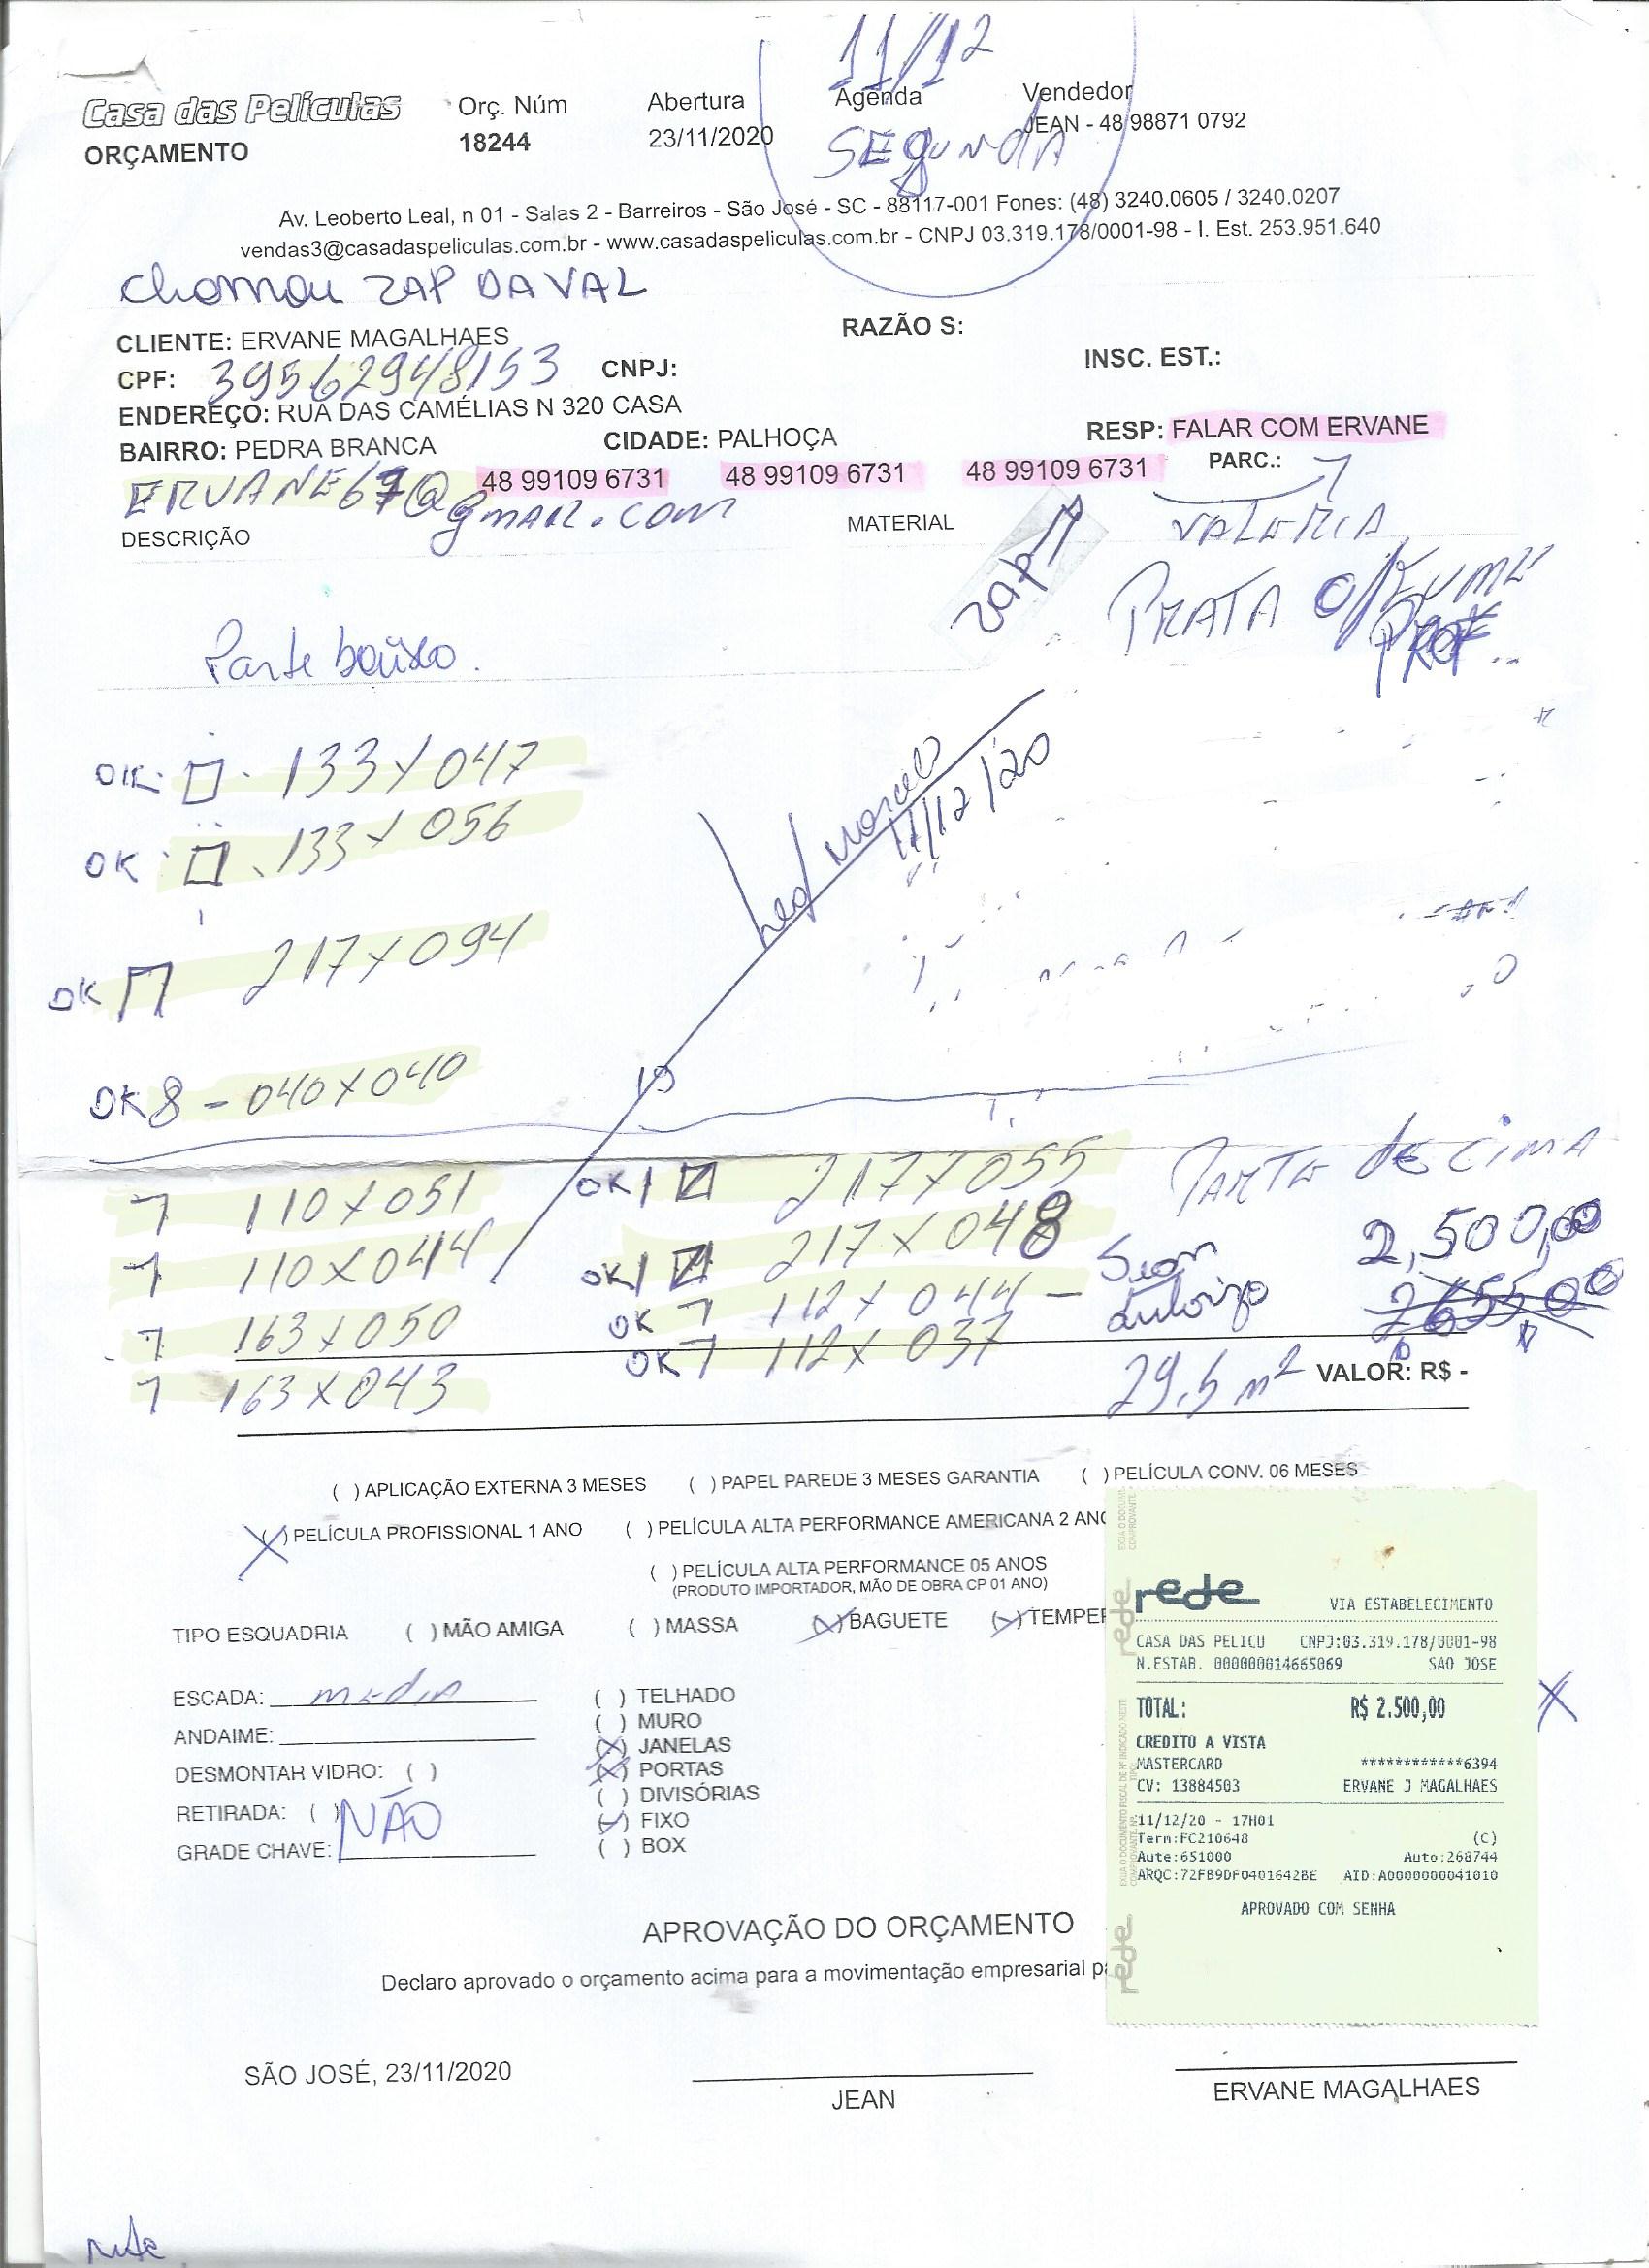 11/12
Casa das Películas Orç. Núm Abertura Agenda Vendedor
ORÇAMENTO 18244 23/11/2020 SEgundA JEAN - 48 98871 0792
Av. Leoberto Leal, n 01 - Salas 2 - Barreiros - São José - SC - 88117-001 Fones: (48) 3240.0605 / 3240.0207
vendas3@casadaspeliculas.com.br - www.casadaspeliculas.com.br - CNPJ 03.319.178/0001-98 - I. Est. 253.951.640
chamou ZAP DA VAL
CLIENTE: ERVANE MAGALHAES RAZÃO S:
CPF: 39562948153 CNPJ: INSC. EST.:
ENDEREÇO: RUA DAS CAMÉLIAS N 320 CASA
BAIRRO: PEDRA BRANCA CIDADE: PALHOÇA RESP: FALAR COM ERVANE
48 99109 6731 48 99109 6731 48 99109 6731 PARC.:
ERVANE67@gmail.com
DESCRIÇÃO MATERIAL
VALERIA
zap
PRATA
PROF
Parte baixo.
OK 133 x 047
OK 133 x 056
Marcelo
11/12/20
OK 217 x 094
OK 8 - 040 x 040
PARTE de CIMA
1 110 x 051 OK 1 217 x 055
1 110 x 044 OK 1 217 x 048 2,500,00
1 163 x 050 OK 1 112 x 044 - Jean autorizo 2655,00
1 163 x 043 OK 1 112 x 037
29,5 m² VALOR: R$ -
( ) APLICAÇÃO EXTERNA 3 MESES ( ) PAPEL PAREDE 3 MESES GARANTIA ( ) PELÍCULA CONV. 06 MESES
(X) PELÍCULA PROFISSIONAL 1 ANO ( ) PELÍCULA ALTA PERFORMANCE AMERICANA 2 AN
( ) PELÍCULA ALTA PERFORMANCE 05 ANOS
(PRODUTO IMPORTADOR, MÃO DE OBRA CP 01 ANO)
TIPO ESQUADRIA ( ) MÃO AMIGA ( ) MASSA (X) BAGUETE (X) TEMPER
ESCADA: media
ANDAIME:
DESMONTAR VIDRO: ( )
RETIRADA: ( ) NÃO
GRADE CHAVE:
( ) TELHADO
( ) MURO
(X) JANELAS
(X) PORTAS
( ) DIVISÓRIAS
(X) FIXO
( ) BOX
rede
VIA ESTABELECIMENTO
CASA DAS PELICU CNPJ:03.319.178/0001-98
N.ESTAB. 000000014665069 SAO JOSE
TOTAL: R$ 2.500,00
X
CREDITO A VISTA
MASTERCARD ************6394
CV: 13884503 ERVANE J MAGALHAES
11/12/20 - 17H01
Term:FC210648 (C)
Aute:651000 Auto:268744
ARQC:72FB9DF0401642BE AID:A0000000041010
APROVADO COM SENHA
rede
rede
APROVAÇÃO DO ORÇAMENTO
Declaro aprovado o orçamento acima para a movimentação empresarial pa
SÃO JOSÉ, 23/11/2020
JEAN
ERVANE MAGALHAES